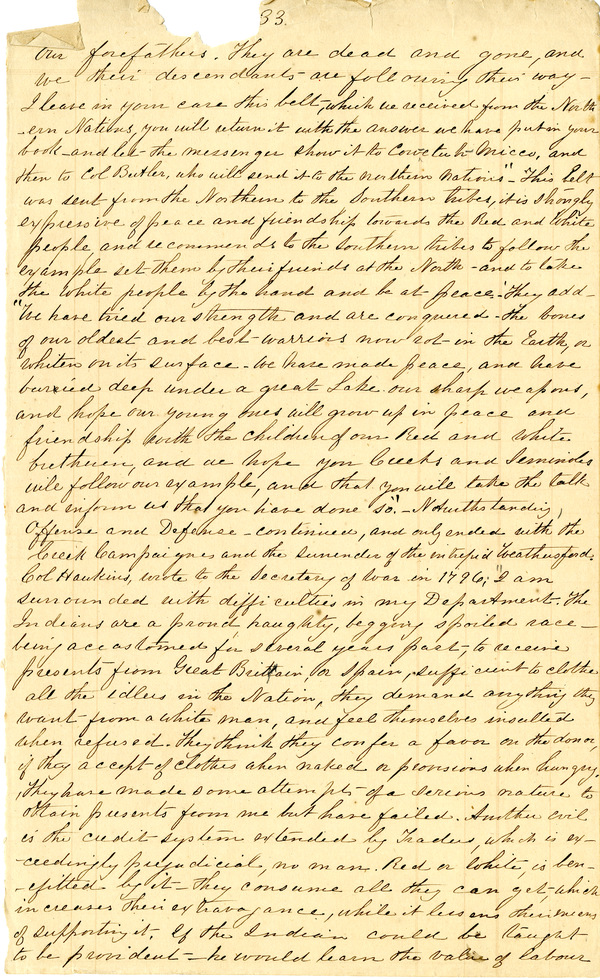 33.
our forefathers. They are dead and gone, and
we their descendants are following their way –
I leave in your care this belt, which we received from the North
-ern Nations, you will return it with the answer we have put in your
book – and let the messenger show it to Cowetuh Micco, and
then to Col Butler, who will send it to the northern nations" – This belt
was sent from the Northern to the Southern tribes, it is strongly
expressive of peace and friendship towards the Red and White
people and recommends to the Southern tribes to follow the
example set them by their friends at the North – and to take
the white people by the hand and be at peace. They add –
"We have tried our strength and are conquered – The bones
of our oldest and best warriors now rot in the Earth, or
whiten on its surface – We have made peace, and have
burried deep under a great Lake our sharp weapons,
and hope our young ones will grow up in peace and
friendship with the children of our Red and White
brethren, and we hope you Creeks and Seminoles
will follow our example, and that you will take the talk
and inform us that you have done so." – Notwithstanding,
Offense and Defense – continued, and only ended with the
Creek Campaigne and the surrender of the intrepid Weathersford.
Col Hawkins, wrote to the Secretary of War in 1796; "I am
surrounded with difficulties in my Department. The
Indians are a proud haughty, begging spoiled race –
being accustomed for several years past, to receive
presents from Great Brittain, or Spain, sufficient to clothe
all the idlers in the Nation, they demand anything they
want from a white man, and feel themselves insulted
when refused. They think they confer a favor on the donor,
if they accept of clothes when naked or provisions when hungry.
They have made some attempts of a serious nature to
obtain presents from me but have failed. Another evil
is the credit system extended by Traders, which is ex-
-ceedingly prejudicial, no man. Red or White, is ben-
-efitted by it – they consume all they can get, which
increases their extravagance, while it lessens their means
of supporting it. If the Indian could be taught
to be provident – he would learn the value of labour